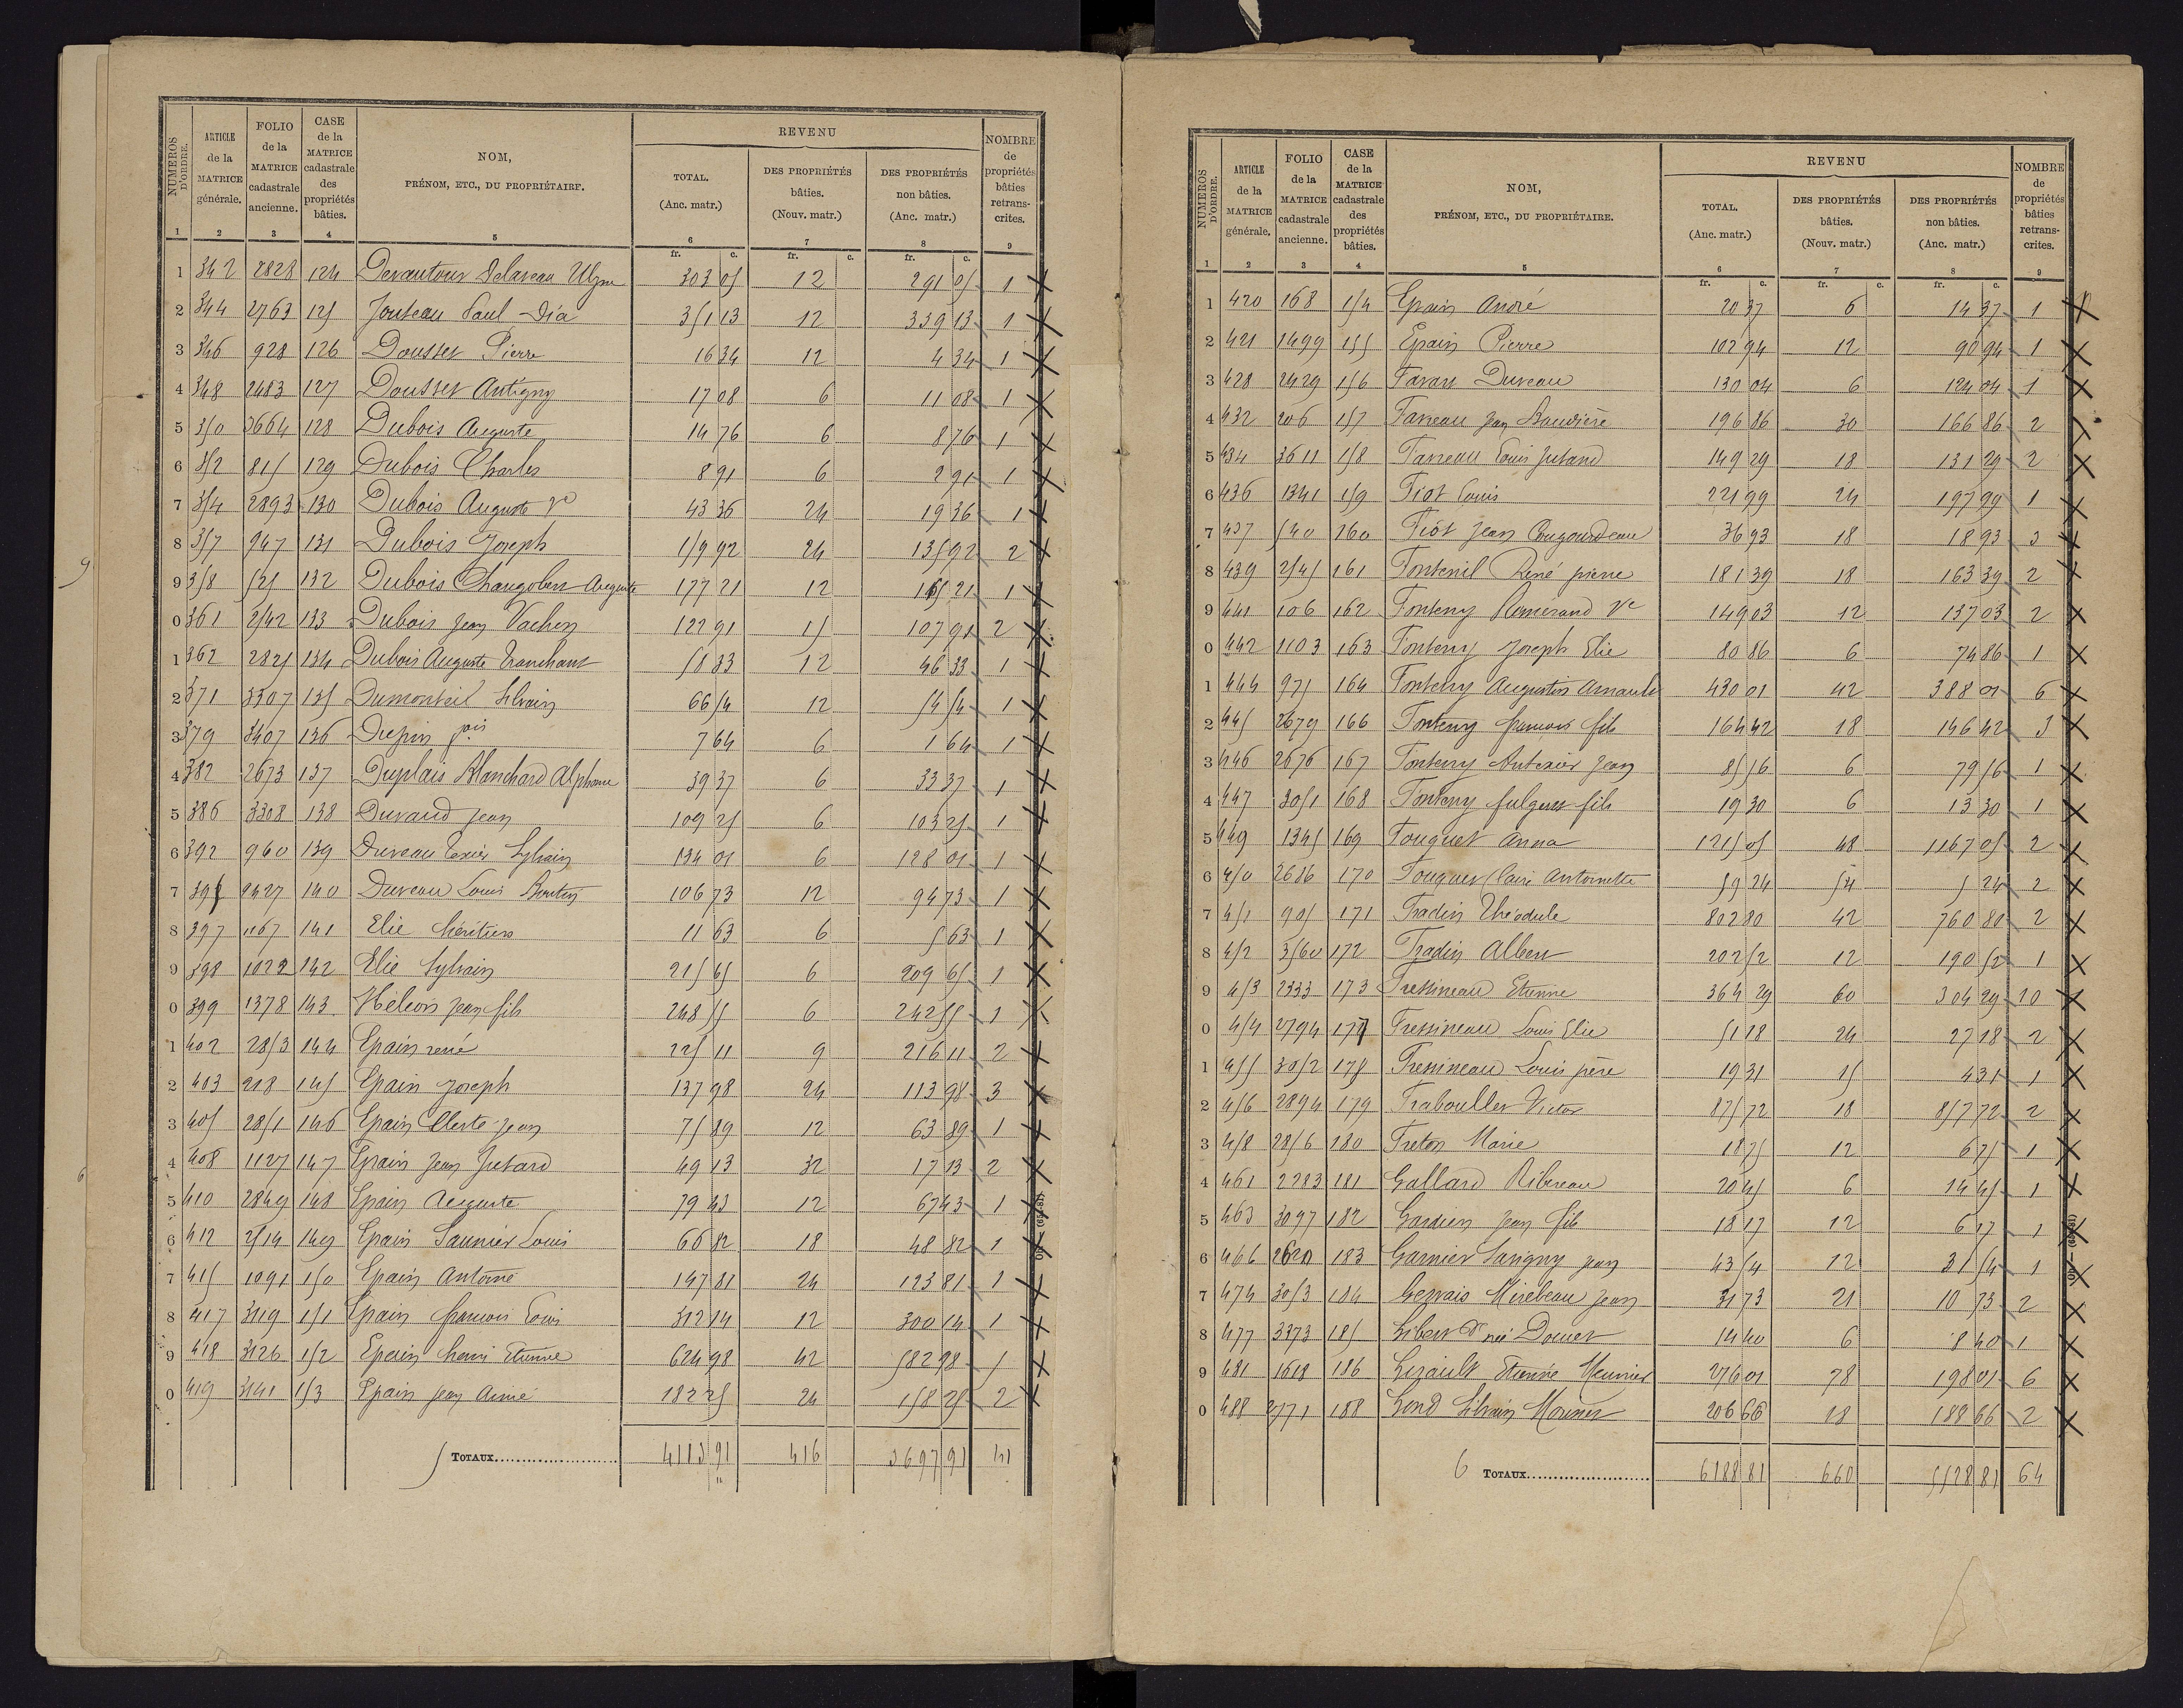 NUMÉROS D'ORDRE. ARTICLE de la MATRICE générale. FOLIO de la MATRICE cadastrale ancienne. CASE de la MATRICE cadastrale des propriétés bâties. NOM, PRÉNOM, ETC., DU PROPRIÉTAIRE. REVENU TOTAL. (Anc. matr.) DES PROPRIÉTÉS bâties. (Nouv. matr.) DES PROPRIÉTÉS non bâties. (Anc. matr.) NOMBRE de propriétés bâties retrans- crites.
1 2 3 4 5 6 7 8 9
fr. c. fr. c. fr. c.
1 342 2828 124 Devautour Delaveau 303 05 12 291 05 1 X
2 344 2763 125 Jouteau Paul 351 13 12 339 13 1 X
3 346 928 126 Dousset Pierre 16 34 12 4 34 1 X
4 348 2483 127 Dousset Antigny 17 08 6 11 08 1 X
5 350 3664 128 Dubois Auguste 14 76 6 8 76 1 X
6 352 815 129 Dubois Charles 8 91 6 2 91 1 X
7 354 2893 130 Dubois Auguste Ve 43 36 24 19 36 1 X
8 357 947 131 Dubois Joseph 159 92 24 135 92 2 X
9 358 525 132 Dubois Auguste 177 21 12 165 21 1 X
0 361 2542 133 Dubois Jean Vachon 122 91 15 107 91 2 X
1 362 2825 134 Dubois Auguste Tranchant 58 33 12 46 33 1 X
2 371 3307 135 Dumonteil Silvain 66 54 12 54 54 1 X
3 379 3407 136 Dupin fois 7 64 6 1 64 1 X
4 382 2673 137 Duplais Blanchard Alphonse 39 37 6 33 37 1 X
5 386 3308 138 Durand Jean 109 25 6 103 25 1 X
6 392 960 139 Duveau Texier Sylvain 134 01 6 128 01 1 X
7 395 2427 140 Duveau Louis Boutin 106 73 12 94 73 1 X
8 397 1167 141 Elie héritiers 11 63 6 5 63 1 X
9 398 1022 142 Elie Sylvain 215 65 6 209 65 1 X
0 399 1378 143 Jean fils 248 55 6 242 55 1 X
1 402 2853 144 Epain rené 225 11 9 216 11 2 X
2 403 218 145 Epain Joseph 137 98 24 113 98 3 X
3 405 2851 146 Epain Jean 75 89 12 63 89 1 X
4 408 1127 147 Epain Jean Jutard 49 13 32 17 13 2 X
5 410 2849 148 Epain Auguste 79 43 12 67 43 1 X
6 412 2514 149 Epain Saunier Louis 66 82 18 48 82 1 X
7 415 1091 150 Epain Antoine 147 81 24 123 81 1 X
8 417 3119 151 Epain francois Louis 312 14 12 300 14 1 X
9 418 3126 152 Epain henri Etienne 624 98 42 582 98 5 X
0 419 3141 153 Epain Jean Aimé 182 25 24 158 25 2 X
5 TOTAUX 4113 91 416 3697 91 41
NUMÉROS D'ORDRE. ARTICLE de la MATRICE générale. FOLIO de la MATRICE cadastrale ancienne. CASE de la MATRICE cadastrale des propriétés bâties. NOM, PRÉNOM, ETC., DU PROPRIÉTAIRE. REVENU TOTAL. (Anc. matr.) DES PROPRIÉTÉS bâties. (Nouv. matr.) DES PROPRIÉTÉS non bâties. (Anc. matr.) NOMBRE de propriétés bâties retrans- crites.
1 2 3 4 5 6 7 8 9
fr. c. fr. c. fr. c.
1 420 168 154 Epain André 20 37 6 14 37 1 X
2 421 1499 155 Epain Pierre 102 94 12 90 94 1 X
3 428 2429 156 Duveau 130 04 6 124 04 1 X
4 432 206 157 Farreau Jean 196 86 30 166 86 2 X
5 434 3611 158 Farreau Louis Jutand 149 29 18 131 29 2 X
6 436 1341 159 Fiot Louis 221 99 24 197 99 1 X
7 437 540 160 Fiot Jean Cougourdeau 36 93 18 18 93 3 X
8 439 2545 161 Fonteuil René pierre 181 39 18 163 39 2 X
9 441 106 162 Fonteny Ve 149 03 12 137 03 2 X
0 442 1103 163 Fonteny Joseph Elie 80 86 6 74 86 1 X
1 444 975 164 Fonteny Augustin Arnault 430 01 42 388 01 6 X
2 445 2679 166 Fonteny francois fils 164 42 18 146 42 3 X
3 446 2676 167 Fonteny Autexier Jean 85 56 6 79 56 1 X
4 447 3051 168 Fonteny fulgent fils 19 30 6 13 30 1 X
5 449 1345 169 Fouquet Anna 1215 05 48 1167 05 2 X
6 450 2686 170 Fouquet Claire Antoinette 59 24 54 5 24 2 X
7 451 905 171 Fradin Théodule 802 80 42 760 80 2 X
8 452 3560 172 Fradin Albert 202 52 12 190 52 1 X
9 453 2333 173 Fressineau Etienne 364 29 60 304 29 10 X
0 454 2794 177 Fressineau Louis Elie 51 18 24 27 18 2 X
1 455 3052 178 Fressineau Louis père 19 31 15 4 31 1 X
2 456 2894 179 Fraboullet Victor 875 72 18 857 72 2 X
3 458 2856 180 Freton Marie 18 75 12 6 75 1 X
4 461 2283 181 Gallard Ribreau 20 45 6 14 45 1 X
5 463 3097 182 Gardien Jean fils 18 17 12 6 17 1 X
6 466 2620 183 Garnier Savigny Jean 43 54 12 31 54 1 X
7 474 3053 184 Gervais Mirebeau Jean 31 73 21 10 73 2 X
8 477 3373 185 Gibert Ve née Doucet 14 40 6 8 40 1 X
9 481 1618 186 Girault Etienne Meunier 276 01 78 198 01 6 X
0 488 2771 188 Gond Silvain 206 66 18 188 66 2 X
6 TOTAUX 6188 81 660 5528 81 64